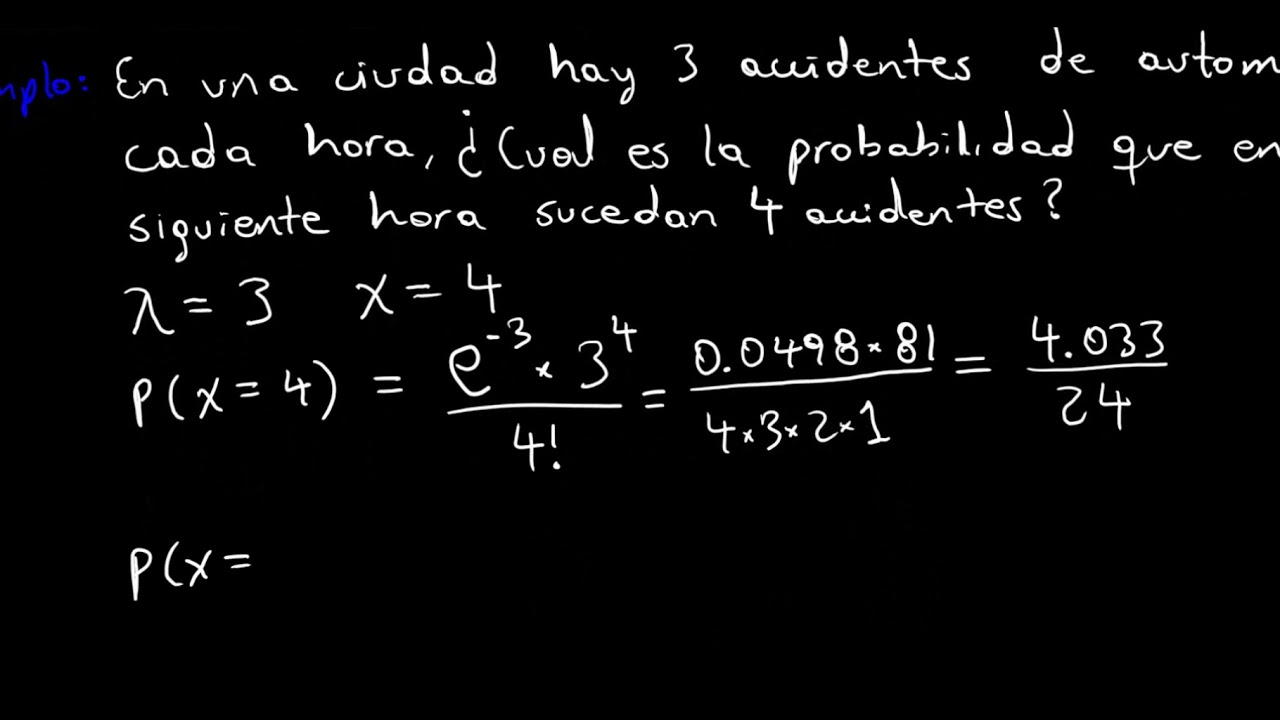 mplo: En una ciudad hay 3 accidentes de autom
cada hora, ¿Cual es la probabilidad que en
siguiente hora sucedan 4 accidentes?
λ = 3 x = 4
P(x = 4) = e^-3 × 3^4 / 4! = 0.0498 × 81 / 4×3×2×1 = 4.033 / 24
P(x =